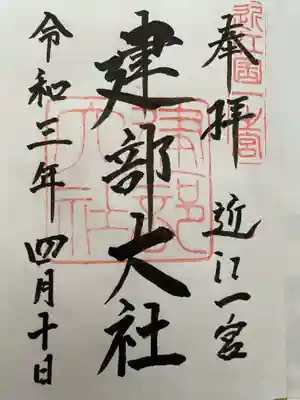 奉拝 近江一宮
建部大社
令和三年四月十日
近江國一之宮
建部大社